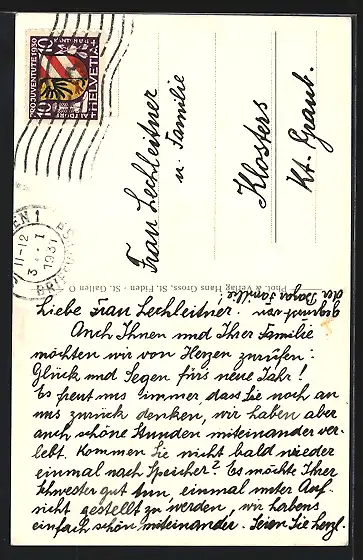 PRO JUVENTUTE 1930
HELVETIA
ALTDORF
10 10
11-12
1931
Frau Lechleitner
u. Familie
Klosters
Kt. Graub.
Phot. & Verlag Hans Gross, St. Fiden - St. Gallen O
Liebe Frau Lechleitner.
Auch Ihnen und Ihrer Familie
möchten wir von Herzen zurufen:
Glück und Segen fürs neue Jahr!
Es freut uns immer, dass Sie noch an
uns zurück denken, wir haben aber
auch schöne Stunden miteinander ver-
lebt. Kommen Sie nicht bald wieder
einmal nach Speicher? Es möchte Ihrer
Schwester gut tun, einmal unter Auf-
sicht gestellt zu werden, wir habens
einfach schön miteinander. Seien Sie herzl.
gegrüsst von
der Familie!